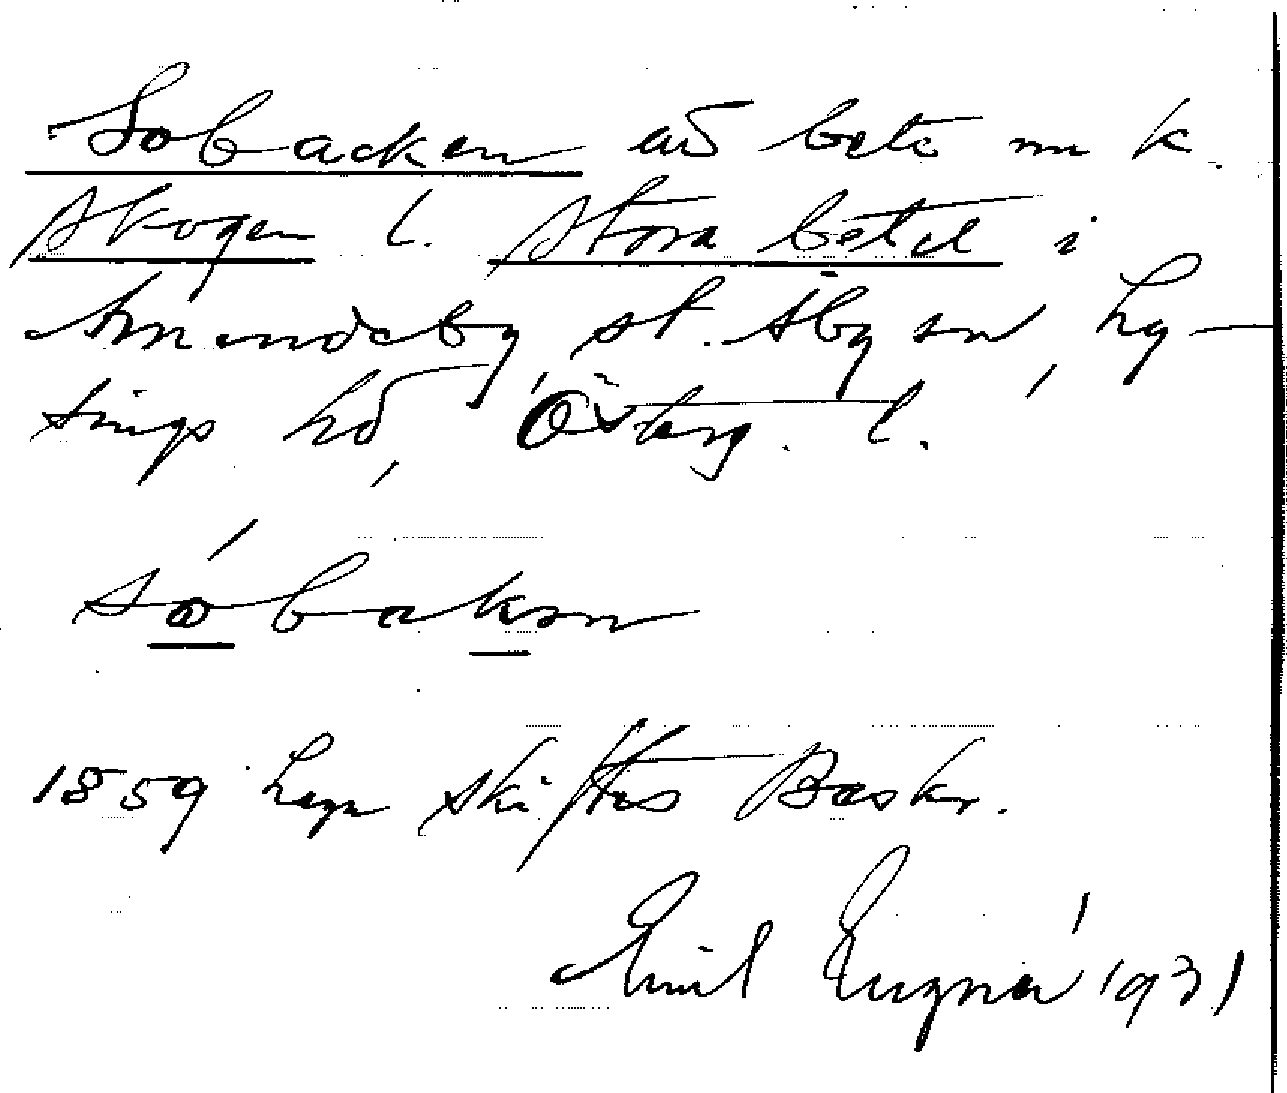 Sobacken av bete nu k.
skogen l. stora betet i
Amundeby, st. Åby sn, Ly-
sings hd, Österg. l.
sobakən
1859 Laga skiftes Beskr.
Emil Eugnér 1931